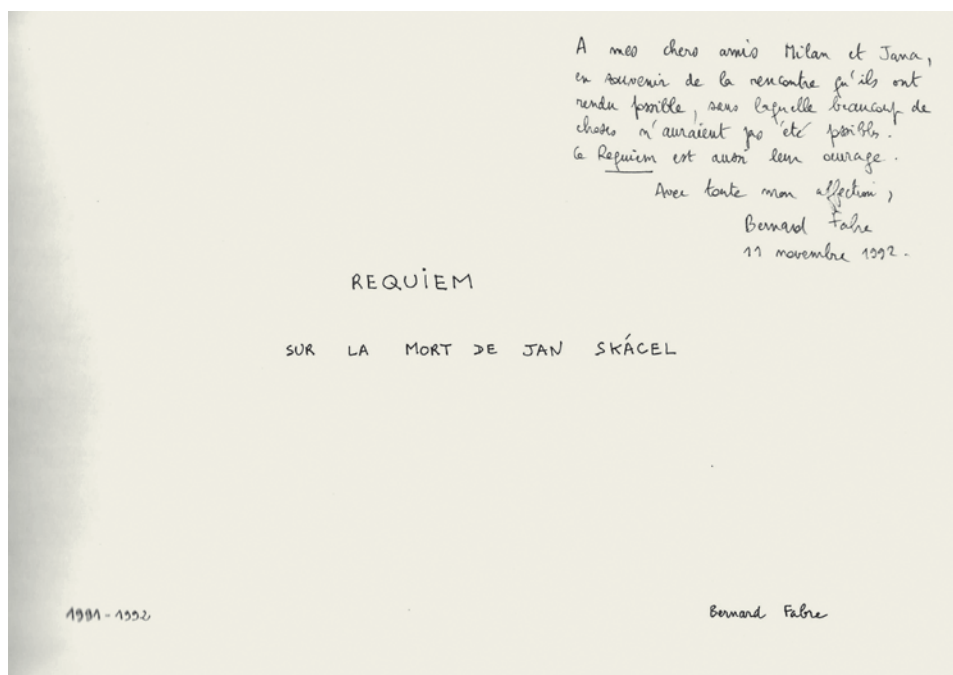 A mes chers amis Milan et Jana,
en souvenir de la rencontre qu'ils ont
rendu possible, sans laquelle beaucoup de
choses n'auraient pas été possibles.
Ce Requiem est aussi leur ouvrage.
Avec toute mon affection,
Bernard Fabre
11 novembre 1992.
REQUiEM
SUR LA MORT DE JAN SKÁCEL
1991-1992
Bernard Fabre